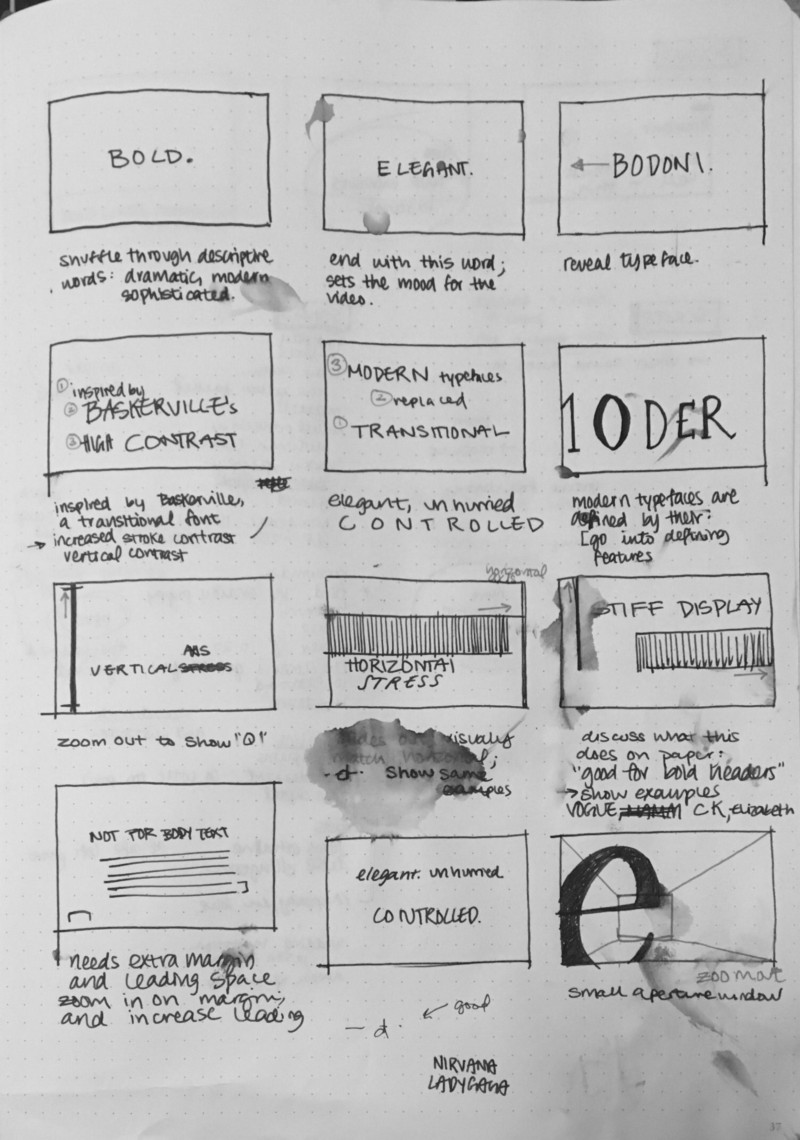 BOLD.
shuffle through descriptive
words: dramatic, modern
sophisticated.
ELEGANT.
end with this word;
sets the mood for the
video.
BODONI.
reveal typeface.
① inspired by
② BASKERVILLE's
③ HIGH CONTRAST
inspired by Baskerville,
a transitional font
→ increased stroke contrast
vertical contrast
③ MODERN typefaces
② replaced
① TRANSITIONAL
elegant, unhurried
CONTROLLED
ODER
modern typefaces are
defined by their:
[go into defining
features
AXIS
VERTICAL STRESS
zoom out to show "O"
horizontal
HORIZONTAl
STRESS
visually
match horizontal;
-d- show same
examples
STIFF DISPLAY
discuss what this
does on paper:
"good for bold headers"
→ show examples
VOGUE, CK, Elizabeth
NOT FOR BODY TEXT
needs extra margin
and leading space
zoom in on margin,
and increase leading
elegant. unhurried
CONTROLLED.
e
zoom out
small aperture window
— d · ← good
NIRVANA
LADYGAGA
37